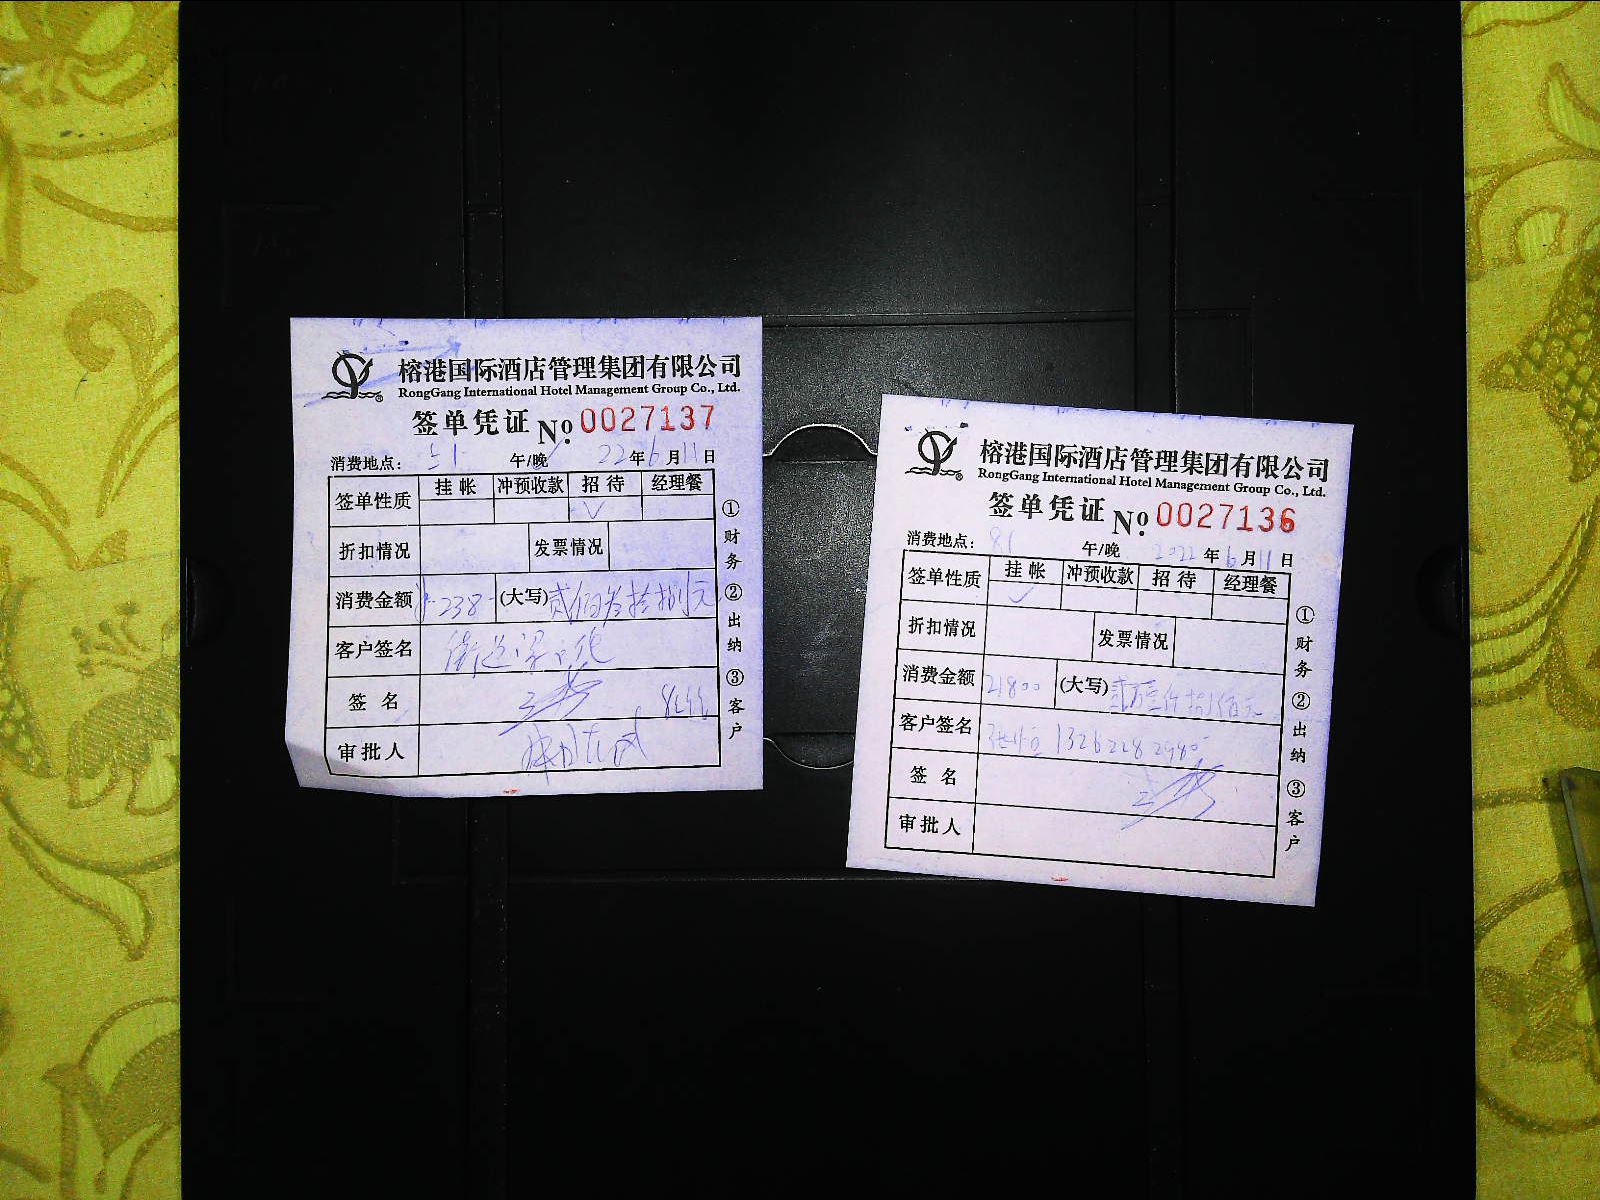 榕港国际酒店管理集团有限公司
RongGang International Hotel Management Group Co., Ltd.
签单凭证 No. 0027137
消费地点： 午/晚 22年6月11日
签单性质 挂帐 冲预收款 招待 经理餐
✓
折扣情况 发票情况
消费金额 238 (大写) 贰佰叁拾捌元
客户签名
签名
审批人
①财务 ②出纳 ③客户
榕港国际酒店管理集团有限公司
RongGang International Hotel Management Group Co., Ltd.
签单凭证 No. 0027136
消费地点： 81 午/晚 2022年6月11日
签单性质 挂帐 冲预收款 招待 经理餐
✓
折扣情况 发票情况
消费金额 21800 (大写)
客户签名
签名
审批人
①财务 ②出纳 ③客户